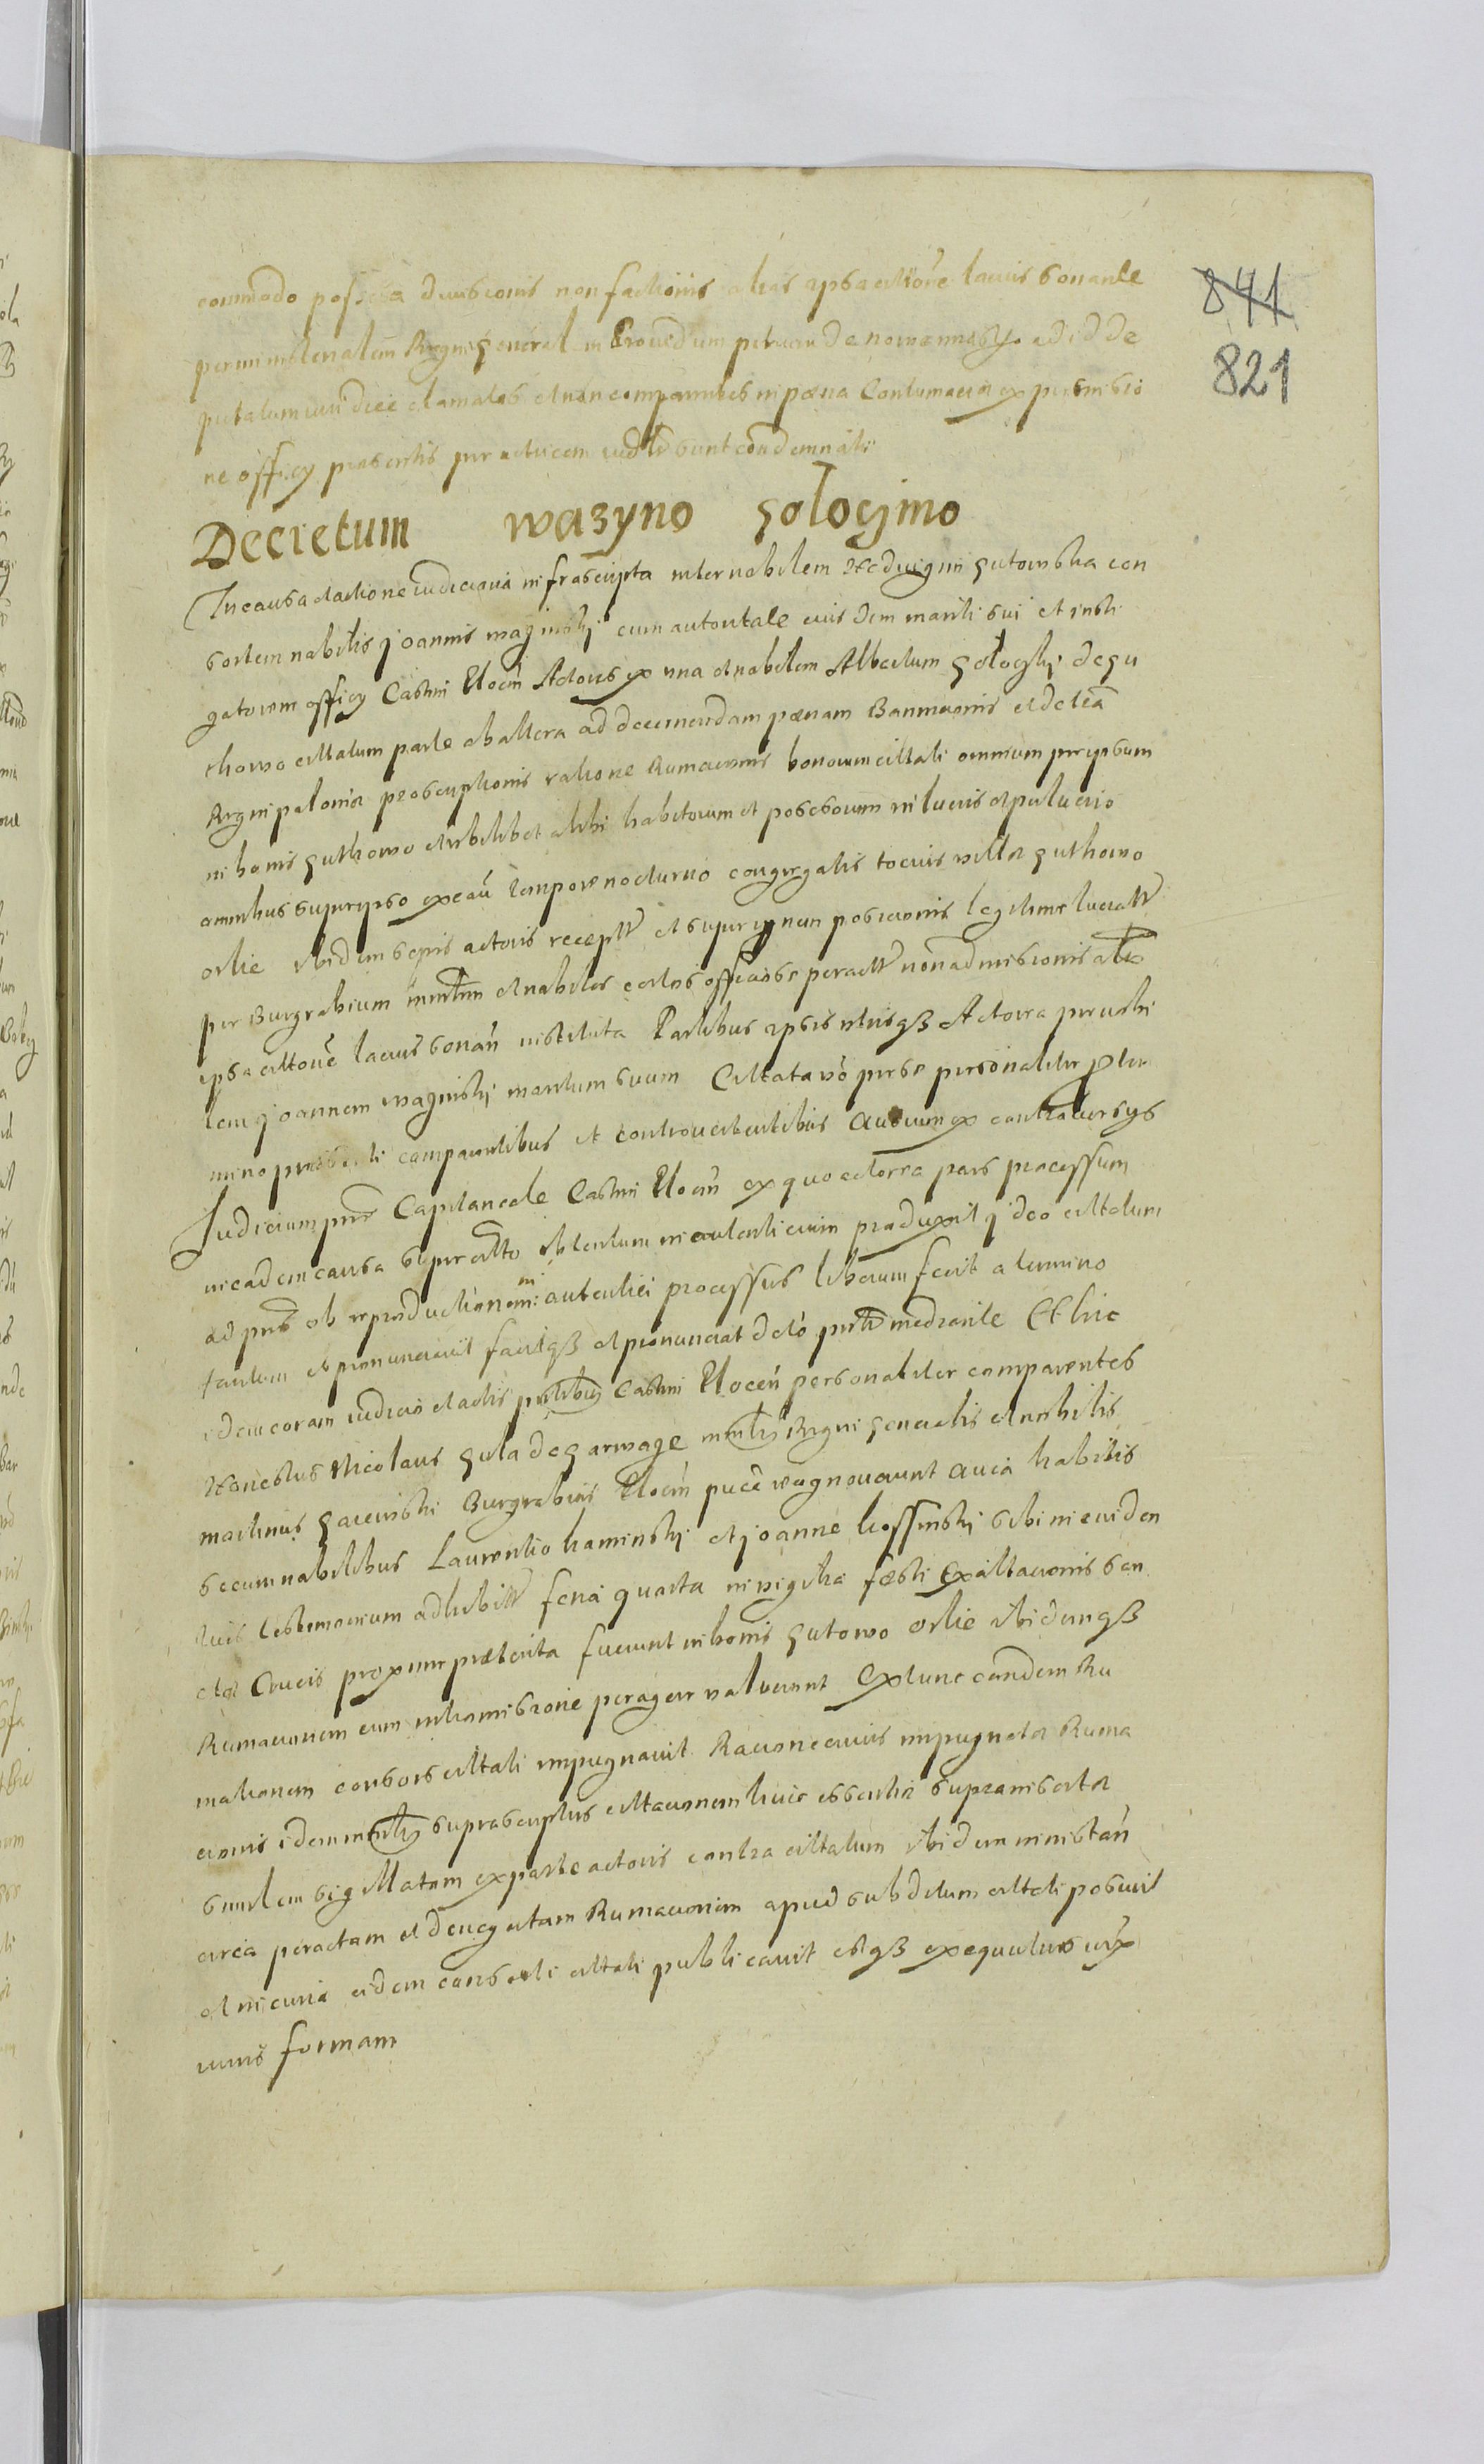 commodo possessa divisionis non factionis alias ipsa cittatione lacius sonante
per ministerialem Regni general
putatum iuridice clamatos et non comparentes in pœna Contumaciæ ex permissio
ne officÿ præsentis per actricem iudtr sunt condemnati
Decretum wazyno golocjmo
In causa et actione iudiciaria infrascripta inter nobilem Hedvigim gutowska con
sortem nobilis joannis waginskj cum autoritate eiusdem mariti sui et insti
gatorem officÿ Castrñ Ploceñ Actores ex una et nobilem Albertum golockj de gu
thowo cittatum parte ab altera ad decernendam pœnam Bannicionis et de terã
Regni poloniæ proscriptionis ratione Rumacionis bonorum cittati omnium per ipsum
in bonis guthowo et ubilibet alibi habitorum et possessorum in lucris et perlucris
omnibus super ipso ex cau tempore nocturno congregatis tocius villæ guthowo
orlie ibidem sepis actoris recept et super non possicionis legitime lucratr
per Burgrabium mintrm et nobiles certos officiose peractr non admissionis alt
ipsa cittatione lacius sonañ instituta Partibus ipsis utrisqß Actorea per nobi
lem joannem waginskj maritum suum Cittata vo per se personaliter in ter
mino præsenti comparentibus et controvertentibus Quorum ex controversÿs
Judicium præs Capitaneale Castrñ Ploceñ ex quo actorea pars processum
in eadem causa super citto obtentum in autenticum produxit jdeo cittatum
ad præs ob reproductionem in: autentici processus liberum fecit a termino
tantum et pronunciavit facitqß et pronunciat dcto prnti mediante Et hic
idem coram iudicio et actis pntibus Castrñ Ploceñ personaliter comparentes
Honestus Nicolaus gula de garwage mintr Regni generalis et nobilis
martinus gacinski Burgrabius Ploceñ puce recognoverunt Quia habitis
secum nobilibus Laurentio kaminskj et joanne kossinskj sibi in eviden
tius testimonium adhibitr feria quarta in vigilia fæsti Exaltacionis san
ctæ Crucis proxime præterita fuerunt in bonis gutowo orlie ibidemqß
Rumacionem cum intromissione peragere voluerunt Ex tunc eandem Ru
mationem consors cittati impugnavit Racione cuius impugnatæ Ruma
cionis idem mintr suprascriptus cittacionem huic essentiæ supramisertæ
similem sigillatam ex parte actoris contra cittatum ibidem ministañ
circa peractam et denegatam Rumacionem apud subditum cittati posuit
et in curia eidem consorti cittati publicavit estqß exequutus iux
iuris formam
841
821